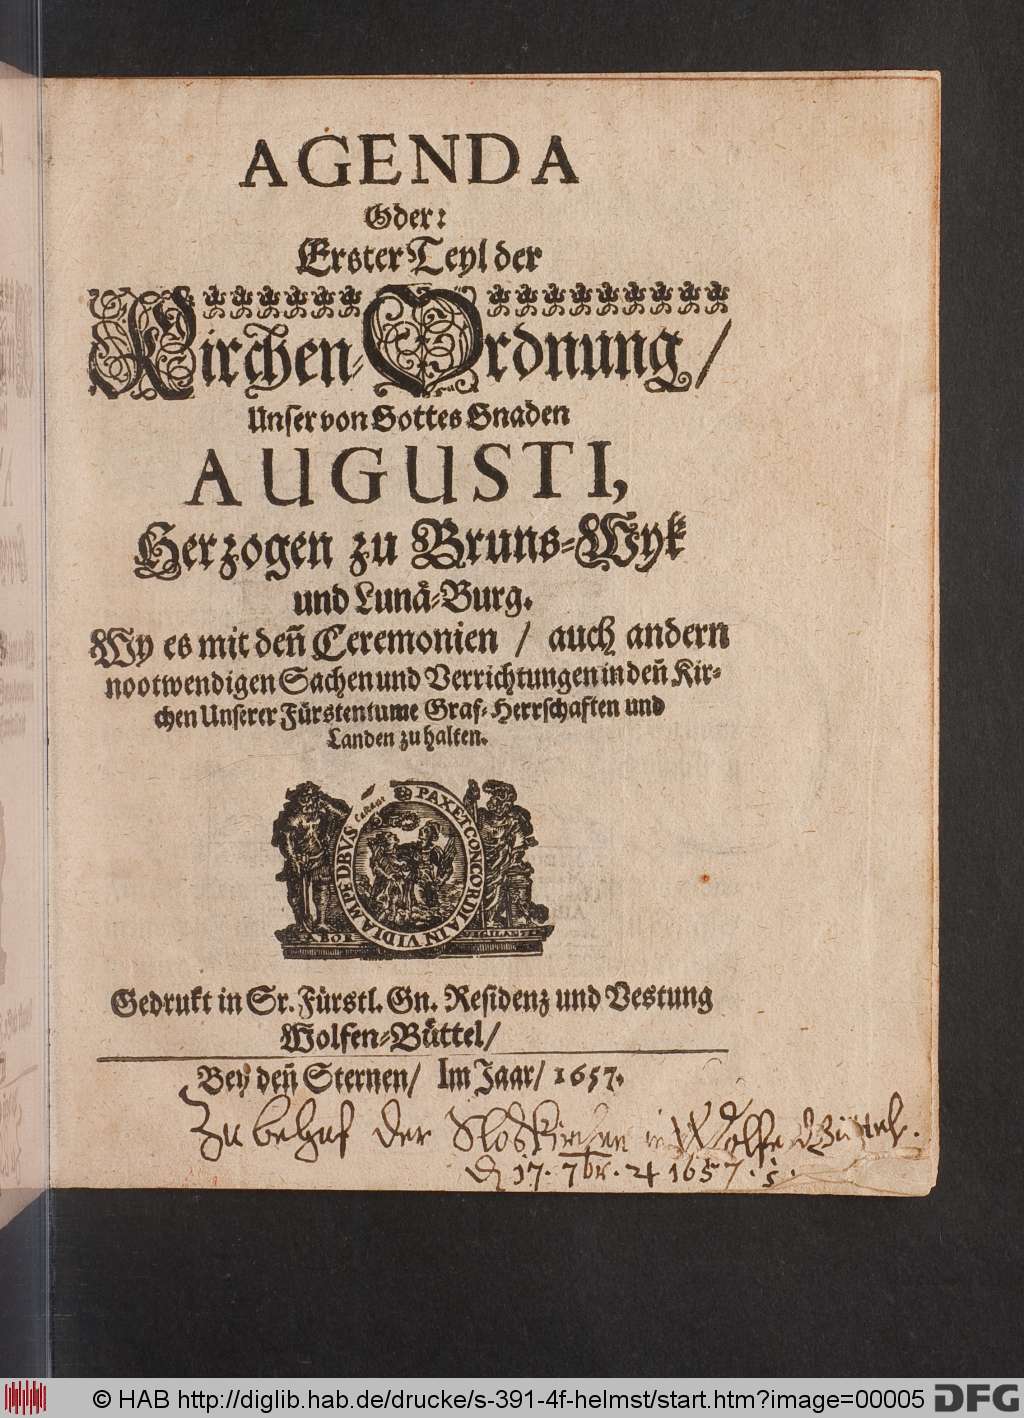 AGENDA
Oder:
Erster Teyl der
Kirchen-Ordnung/
Unser von Gottes Gnaden
AUGUSTI,
Herzogen zu Bruns-Wyk
und Lunä-Burg.
Wy es mit deñ Ceremonien / auch andern
nootwendigen Sachen und Verrichtungen in deñ Kir-
chen Unserer Fürstentume Graf-Herrschaften und
Landen zu halten.
PAX ET CONCORDIA IN VIDIAM PEDBVS
Gedrukt in Sr. Fürstl. Gn. Residenz und Vestung
Wolfen-Büttel/
Bey deñ Sternen/ Im Jaar/ 1657.
Zu behuf der Sloskirchen in
17. 7br. ♃ 1657.
© HAB http://diglib.hab.de/drucke/s-391-4f-helmst/start.htm?image=00005
DFG